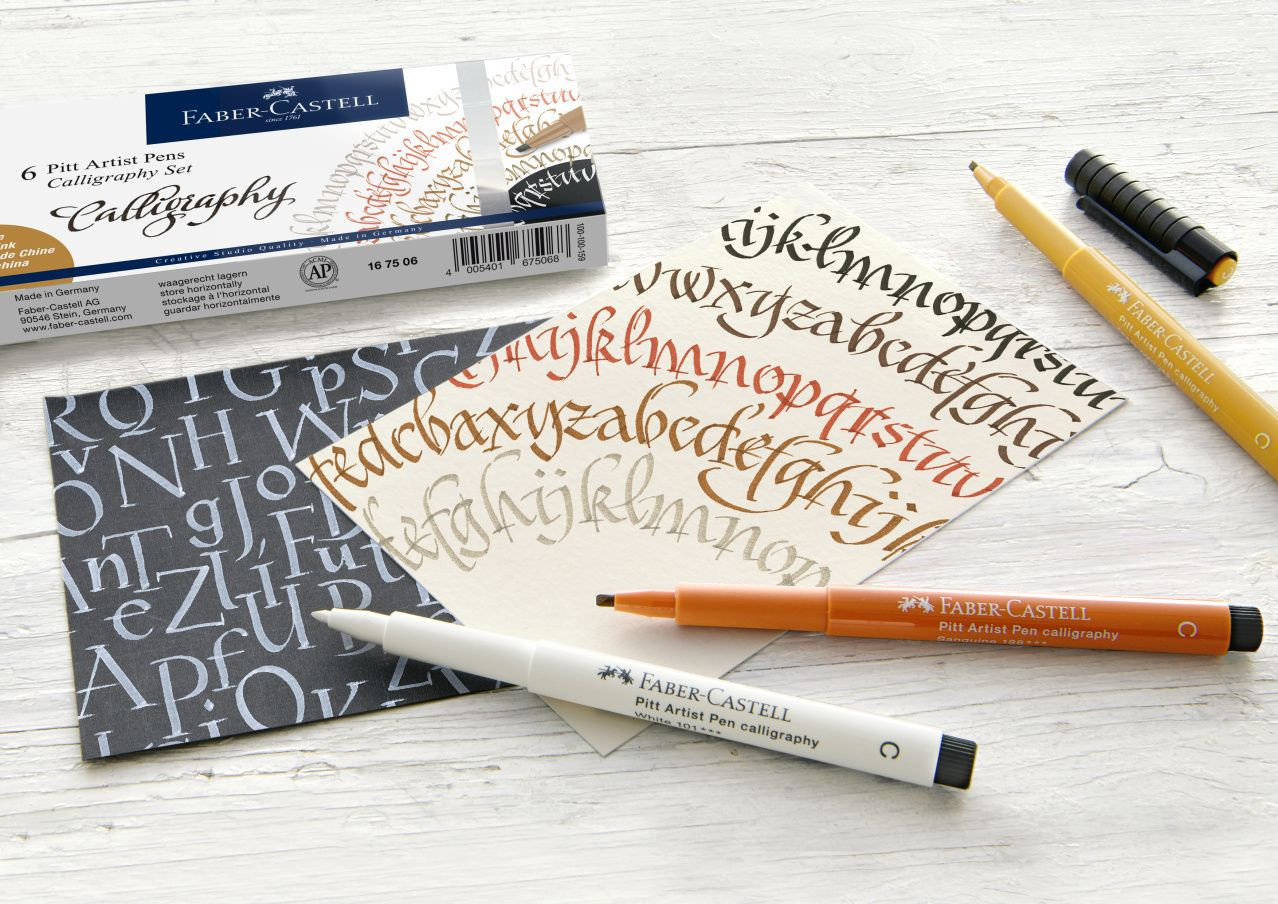 FABER-CASTELL
since 1761
6 Pitt Artist Pens
Calligraphy Set
Calligraphy
ink
de Chine
china
Creative Studio Quality · Made in Germany
Made in Germany
Faber-Castell AG
90546 Stein, Germany
www.faber-castell.com
waagerecht lagern
store horizontally
stockage à l'horizontal
guardar horizontalmente
AP
16 75 06
4 005401 675068
100-100-159
ijklmnopqrstu
vwxyzabcdefghi
hijklmnopqrstuv
fedcbaxyzabcdefghijk
defghijklmnop
RQ TG pSC
ON H W
gJo
AnT
eZl
Fut
ApfU
FABER-CASTELL
Pitt Artist Pen calligraphy
C
FABER-CASTELL
Pitt Artist Pen calligraphy
Sanguine 188***
C
FABER-CASTELL
Pitt Artist Pen calligraphy
White 101***
C